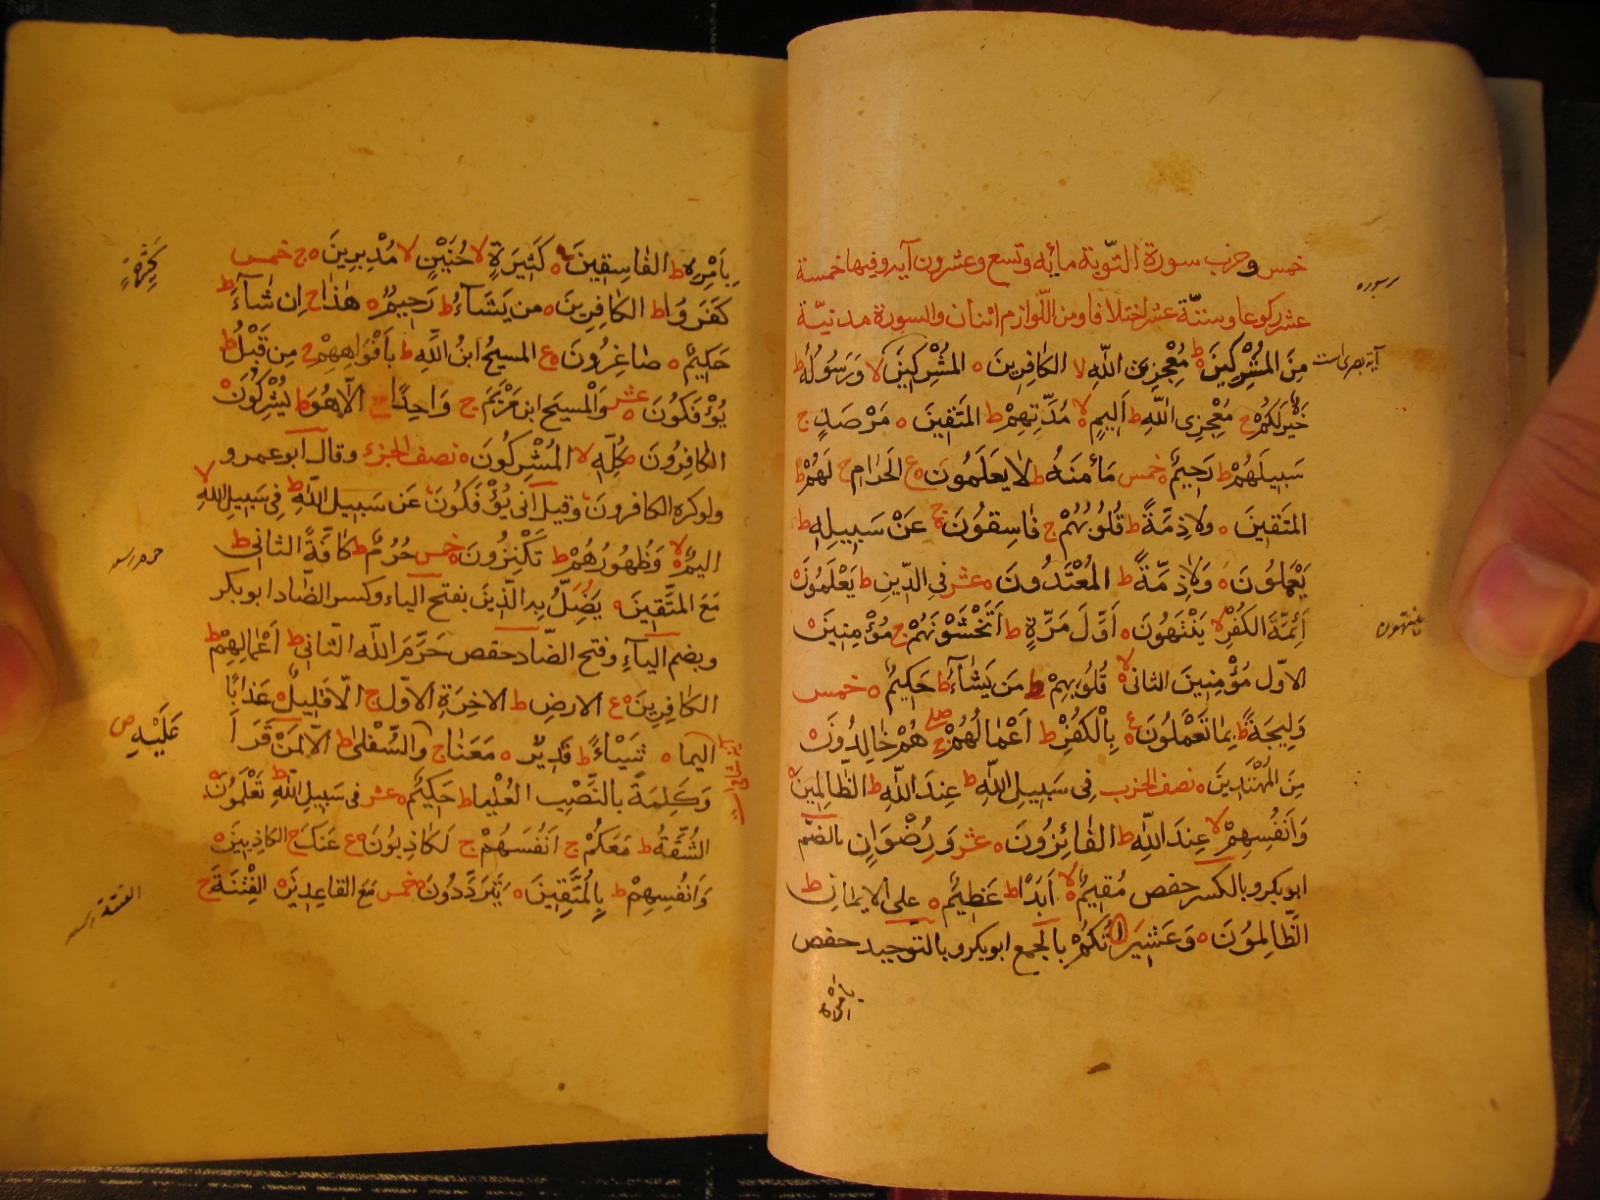 خمس وحزب سورة التّوبة مائه وتسع وعشرون آيه وفيها خمسة
عشر ركوعا وستّة عشر اختلافا ومن اللّوازم اثنان والسورة مدنيّة
مِنَ المُشْرِكِينَ ه ط مُعْجِزِى اللّهِ لا الكَافِرِينَ ه المُشْرِكِينَ لا وَرَسُولُهُ ط
آية بصرى است
خَيْرٌ لَكُمْ ج مُعْجِزِى اللّهِ ط اَلِيمٍ لا مُدَّتِهِمْ ط المتَقِينَ ه مَرْصَدٍ ج
سَبِيلَهُمْ ط رَحِيمٌ ه خمس مَأمَنَهُ ط لَا يَعلَمُونَ ه ع الحَرَامِ ج لَهُمْ ط
المتَقِينَ ه وَلَا ذِمَّةً ط قُلُوبُهُمْ ج فَاسِقُونَ ه ج عَنْ سَبِيلِهِ ط
يَعْمَلُونَ ه وَلَا ذِمَّةً ط المُعْتَدُونَ ه عشر فِى الدِّينِ ط يَعْلَمُونَ ه
اَئِمَّةَ الكُفْرِ لا يَنْتَهُونَ ه اَوَّلَ مَرَّةٍ ط اَتَخْشَوْنَهُمْ ج مُؤْمِنِينَ ه
ينتهون
الاوّل مُؤْمِنِينَ الثانى ه لا قُلُوبِهِمْ ط مَن يَشَآءُ ط حَكِيمٌ ه خمس
وَلِيجَةً ط بِمَا تَعْمَلُونَ ه ع بِالْكُفْرِ ط اَعْمَالُهُمْ ج صلے هُمْ خَالِدُونَ ه
مِنَ المُهْتَدِينَ ه نصف الحزب فِى سَبِيلِ اللّهِ ط عِندَ اللّهِ ط الظّالِمِينَ ه
وَاَنفُسِهِمْ لا عِندَ اللّهِ ط الفَائِزُونَ ه عشر وَرُضْوَانٍ بالضمّ
ابوبكر وبالكسر حفص مُقِيمٌ ه لا اَبَدًا ط عَظِيمٌ ه على الايمان ط
الظّالِمُونَ ه وَعَشِيرَاتُكُمْ بالجمع ابوبكر وبالتوحيد حفص
بِاَمْرِهِ
بِاَمْرِهِ ط الفَاسِقِينَ ه ع كَثِيرَةٍ لا حُنَيْنٍ لا مُدْبِرِينَ ه ج خمس
كَفَرُوا ط الكَافِرِينَ ه من يَشَآءُ ط رَحِيمٌ ه هٰذَا ج اِن شَآءَ ط
حَكِيمٌ ه صَاغِرُونَ ه ع المسيحُ ابنُ اللّهِ ط بِاَفْوَاهِهِمْ ج مِن قَبْلُ ط
يُؤْفَكُونَ ه عشر وَالْمسيحَ ابنَ مَرْيَمَ ج وَاحِدًا ج اِلّا هُوَ ط يُشْرِكُونَ ه
الكَافِرُونَ ه كُلِّهِ لا المُشْرِكُونَ ه نصف الجزء وقال ابو عمرو
ولو كره الكافرون وقيل انى يُؤْفَكُونَ عَن سَبِيلِ اللّهِ ط فِى سَبِيلِ اللّهِ لا
اليمٍ ه لا وَظُهُورُهُمْ ط تَكْنِزُونَ ه خمس حُرُمٌ ط كَافَّةً الثانى ط
مَعَ المتَّقِينَ ه يَضِلُّ بِهِ الَّذِينَ بفتح الياء وكسر الضّاد ابوبكر
وبضم اليآءِ وفتح الضّاد حفص حَرَّمَ اللّه الثّانى ط اَعْمَالِهِمْ ط
الكَافِرِينَ ه ع الارضِ ط الاخِرَةِ الاوّل ج اِلّا قَلِيلٌ ه عَذَابًا
عَلَيْهِ ص
اليما ه شَيْاءً ط قَدِيرٌ ه مَعَنَا ج والسُّفلى ط الّا لِمَنْ قَرَأَ
وَكَلِمَةَ بالنَّصْبِ العُلْيا ط حَكِيمٌ ه عشر فى سَبِيلِ اللّهِ ط تَعْلَمُونَ ه
الشُّقَّةُ ط مَعَكُمْ ج اَنفُسَهُمْ ج لَكَاذِبُونَ ه ع عَنكَ ج الكَاذِبِينَ ه
وَاَنفُسِهِمْ ط بِالْمُتَّقِينَ ه يَتَرَدَّدُونَ ه خمس مَعَ القَاعِدِينَ ه الفِتْنَةَ ج